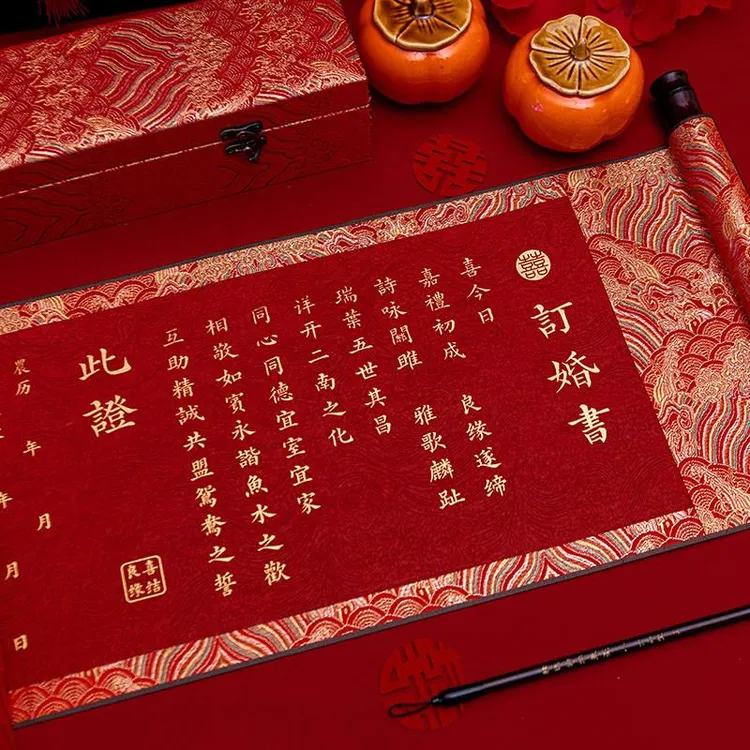 囍
訂婚書
喜今日
嘉禮初成 良缘遂缔
詩咏關雎 雅歌麟趾
瑞葉五世其昌
详开二南之化
同心同德宜室宜家
相敬如賓永諧魚水之歡
互助精誠共盟鴛鴦之誓
此證
喜结良缘
農历 年 月
年 月 日